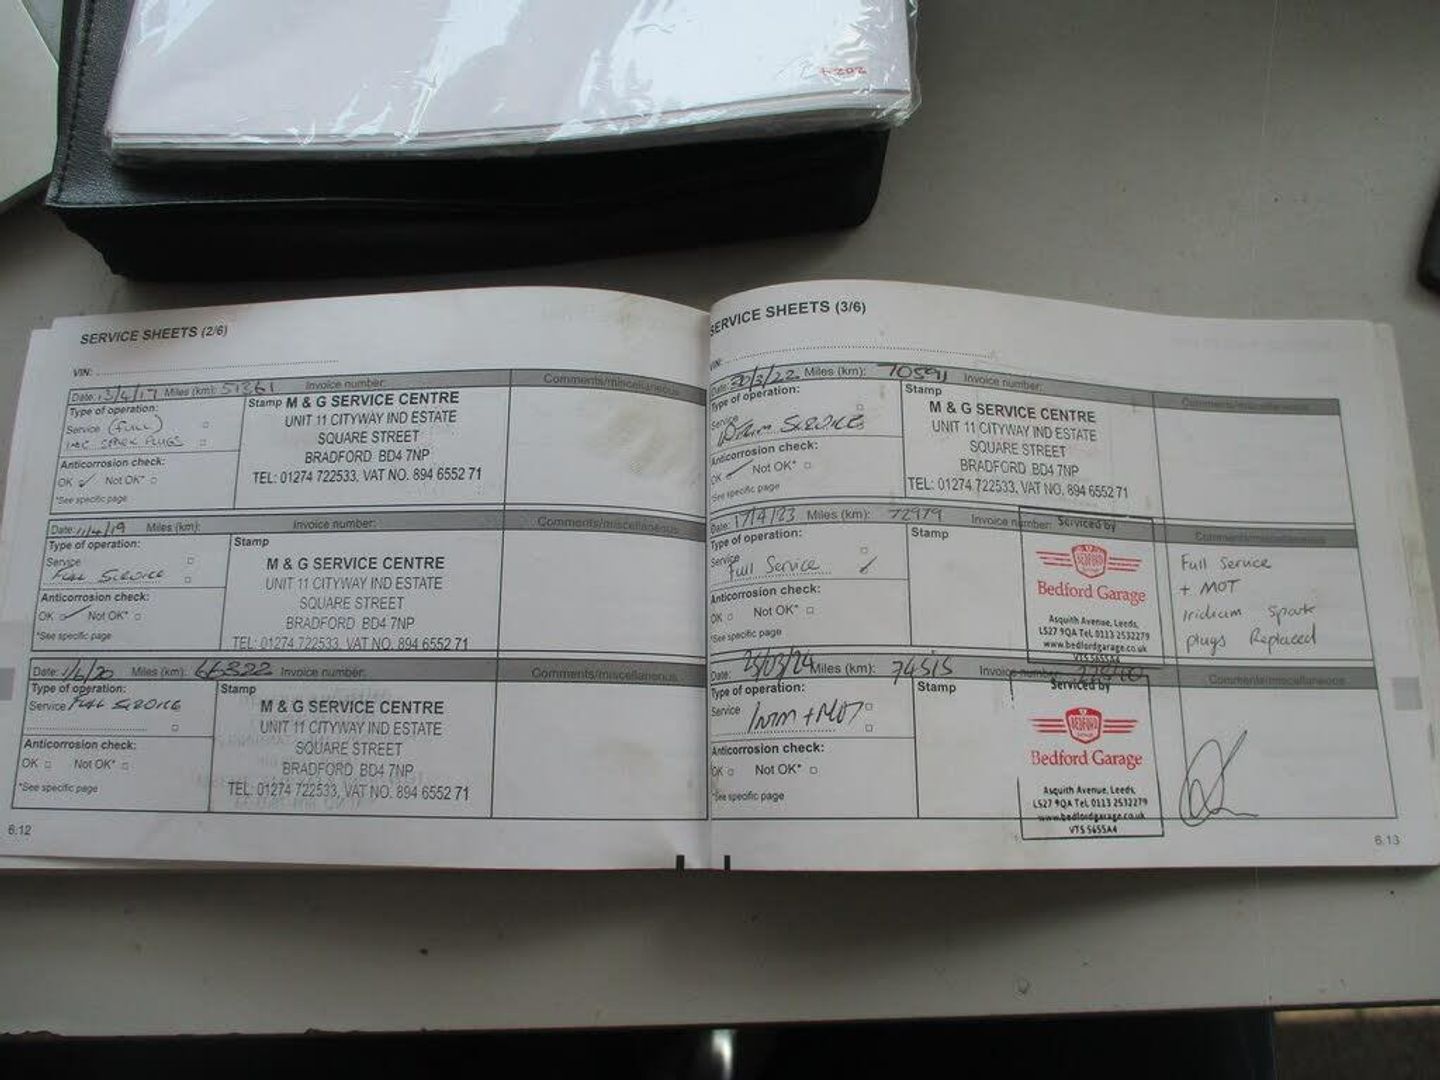 SERVICE SHEETS (2/6)
VIN:
Date: 13/4/17 Miles (km): 51261 Invoice number: Comments/miscellaneous
Type of operation:
Service (FULL)
INC SPARK PLUGS
Anticorrosion check:
OK ✓ Not OK*
*See specific page
Stamp M & G SERVICE CENTRE
UNIT 11 CITYWAY IND ESTATE
SQUARE STREET
BRADFORD BD4 7NP
TEL: 01274 722533, VAT NO. 894 6552 71
Date: 11/4/19 Miles (km): Invoice number: Comments/miscellaneous
Type of operation:
Service
FULL SERVICE
Anticorrosion check:
OK ✓ Not OK*
*See specific page
Stamp
M & G SERVICE CENTRE
UNIT 11 CITYWAY IND ESTATE
SQUARE STREET
BRADFORD BD4 7NP
TEL: 01274 722533, VAT NO. 894 6552 71
Date: Miles (km): 66322 Invoice number: Comments/miscellaneous
Type of operation:
Service FULL SERVICE
Anticorrosion check:
OK Not OK*
*See specific page
Stamp
M & G SERVICE CENTRE
UNIT 11 CITYWAY IND ESTATE
SQUARE STREET
BRADFORD BD4 7NP
TEL: 01274 722533, VAT NO. 894 6552 71
6.12
SERVICE SHEETS (3/6)
VIN:
Date: 30/3/22 Miles (km): 70591 Invoice number: Comments/miscellaneous
Type of operation:
Service
SERVICE
Anticorrosion check:
OK ✓ Not OK*
*See specific page
Stamp
M & G SERVICE CENTRE
UNIT 11 CITYWAY IND ESTATE
SQUARE STREET
BRADFORD BD4 7NP
TEL: 01274 722533, VAT NO. 894 6552 71
Date: 17/4/23 Miles (km): 72979 Invoice number: Comments/miscellaneous
Type of operation:
Service
Full Service ✓
Anticorrosion check:
OK Not OK*
*See specific page
Stamp
Serviced by
BEDFORD
Bedford Garage
Asquith Avenue, Leeds,
LS27 9QA Tel. 0113 2532279
www.bedfordgarage.co.uk
VTS 5655A4
Full Service
+ MOT
Iridium Spark
plugs Replaced
Date: 25/03/24 Miles (km): 74515 Invoice number: Comments/miscellaneous
Type of operation:
Service
+ MOT
Anticorrosion check:
OK Not OK*
*See specific page
Stamp
Serviced by
BEDFORD
Bedford Garage
Asquith Avenue, Leeds,
LS27 9QA Tel. 0113 2532279
www.bedfordgarage.co.uk
VTS 5655A4
6.13